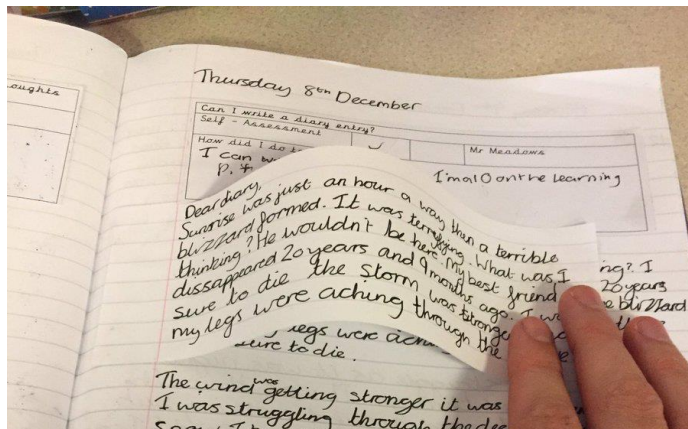 oughts
Thursday 8th December
Can I write a diary entry?
Self - Assessment
How did I do
Mr Meadows
I can
I'm a 10 on the learning
Dear diary,
Sunrise was just an hour a way then a terrible
blizzard formed. It was terrifying. What was I
thinking? He wouldn't be here. My best friend
dissappeared 20 years and 9 months ago. I
sure to die the storm was stronger
my legs were aching through the
I
20 years
blizzard
legs were
sure to die.
The wind was getting stronger it was
I was struggling through the